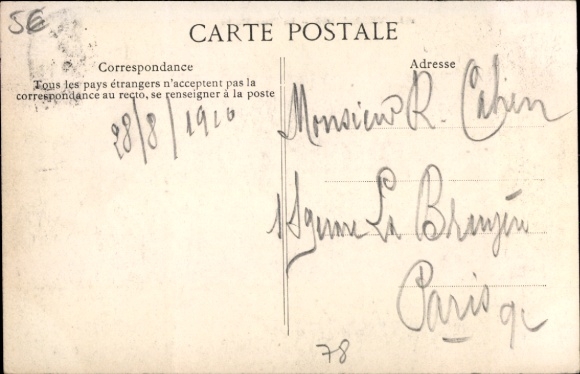 5€
CARTE POSTALE
Correspondance
Tous les pays étrangers n'acceptent pas la
correspondance au recto, se renseigner à la poste
28/8/1910
Adresse
Monsieur R. Cahen
La
Paris 9e
78